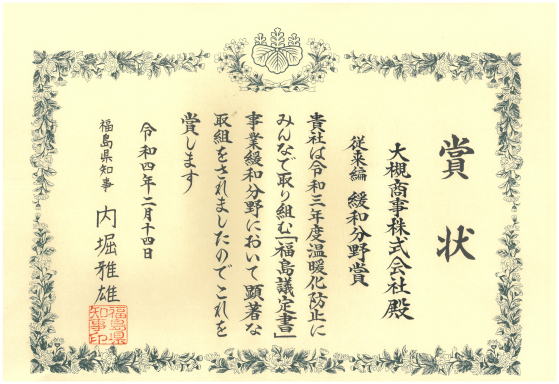 賞状
大槻商事株式会社殿
従来編 緩和分野賞
貴社は令和三年度温暖化防止に
みんなで取り組む「福島議定書」
事業緩和分野において顕著な
取組をされましたのでこれを
賞します
令和四年二月十四日
福島県知事 内堀雅雄
福島県
知事印